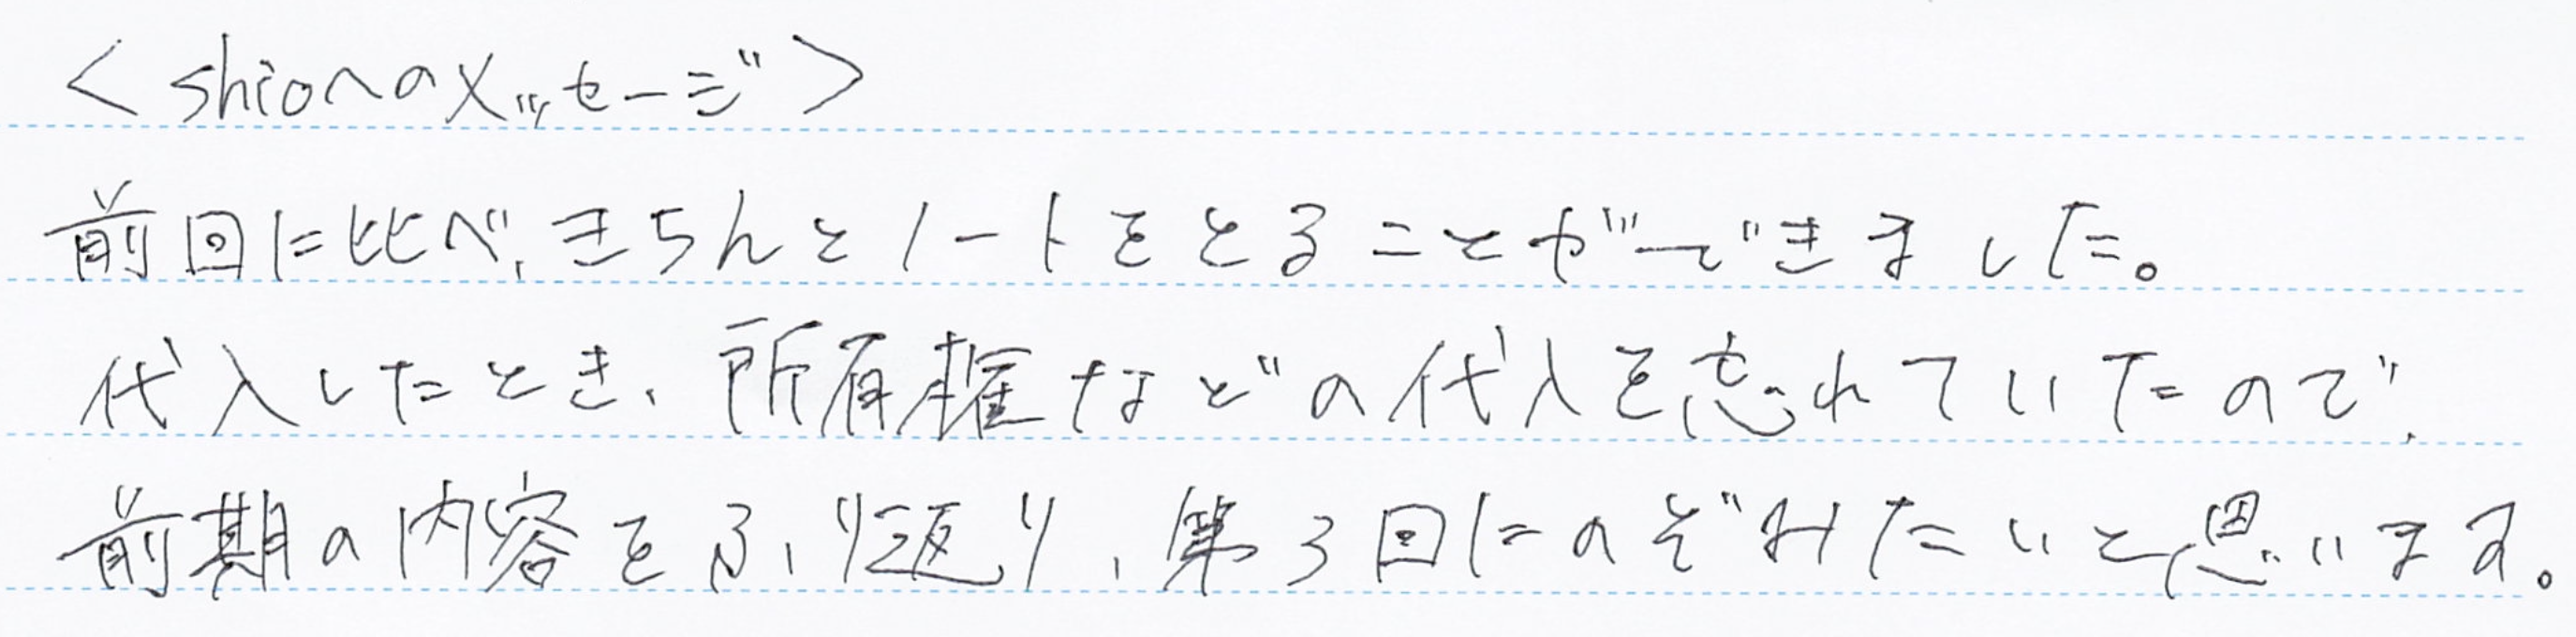 <shioへのメッセージ>
前回に比べ、きちんとノートをとることができました。
代入したとき、所有権などの代入を忘れていたので、
前期の内容をふり返り、第3回にのぞみたいと思います。